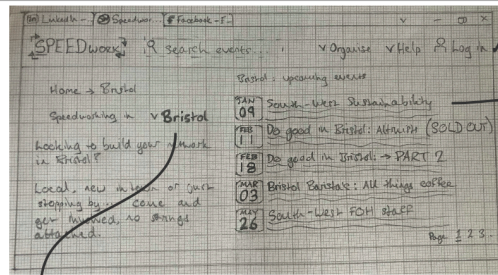 in LinkedIn - Speedwor.. f Facebook - F..
SPEEDwork search events... v Organise v Help Log in
Home → Bristol
Speedworking in v Bristol
Looking to build your network
in Bristol?
Local, new in town or just
stopping by... come and
get involved, no strings
attached.
Bristol: upcoming events
JAN 09 South-West Sustainability
FEB 11 Do good in Bristol: Altruists (SOLD OUT)
FEB 18 Do good in Bristol: → PART 2
MAR 03 Bristol Baristas: All things coffee
MAY 26 South-West FOH staff
Page 1 2 3..